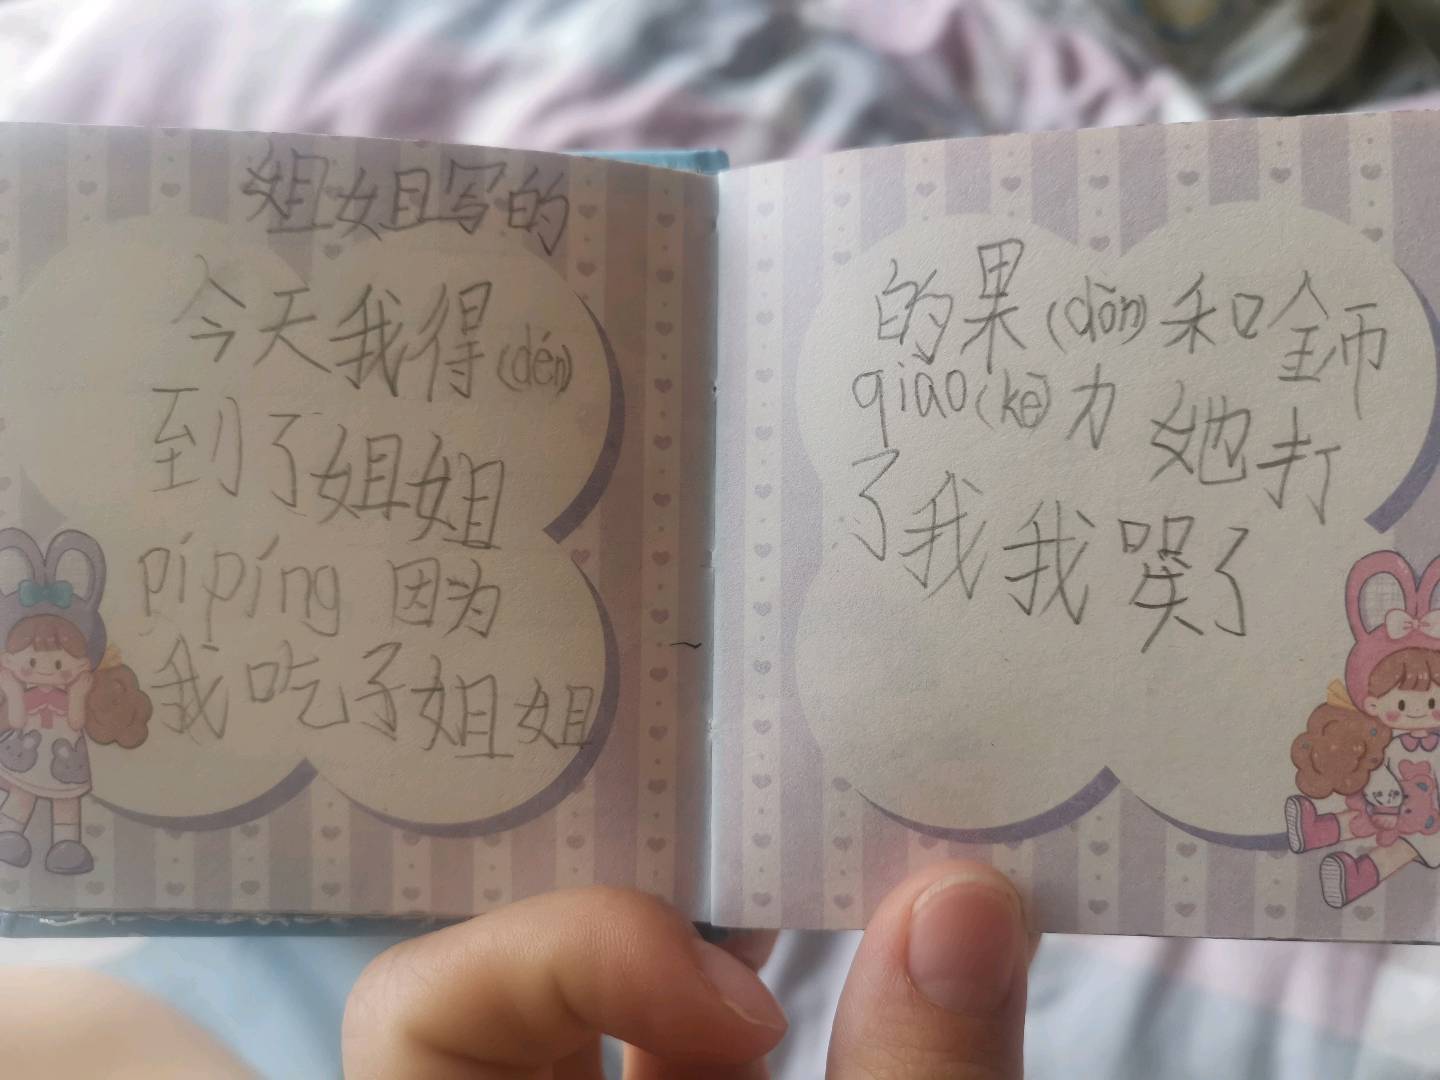 姐姐写的
今天我得(dén)
到了姐姐
pípíng 因为
我吃了姐姐
的果(dòn)和
qiǎo(kē)力 她打
了我我哭了